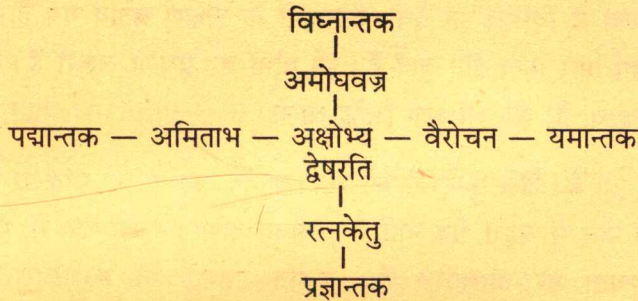 विघ्नान्तक
अमोघवज्र
पद्मान्तक — अमिताभ — अक्षोभ्य — वैरोचन — यमान्तक
द्वेषरति
रत्नकेतु
प्रज्ञान्तक